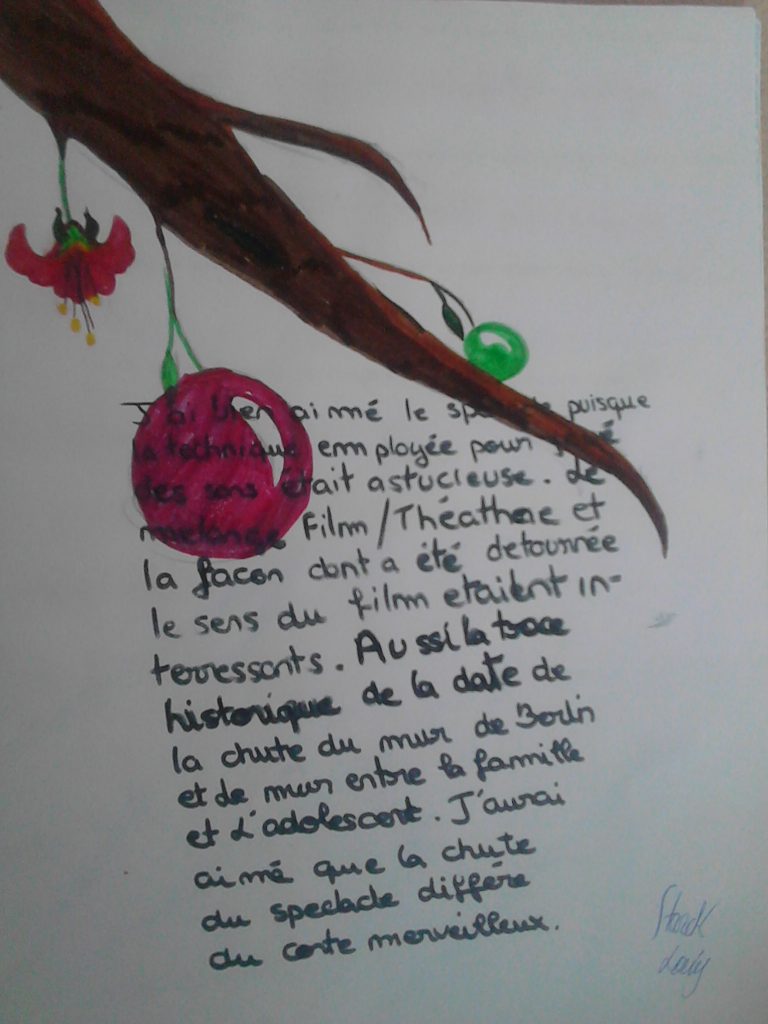 J'ai bien aimé le spectacle puisque
la technique employée pour
des sens était astucieuse. Le
mélange Film/Théathre et
la facon dont a été detournée
le sens du film etaient in-
terressants. Aussi la trace
historique de la date de
la chute du mur de Berlin
et de mur entre la famille
et l'adolescent. J'aurai
aimé que la chute
du spectacle différe
du conte merveilleux.